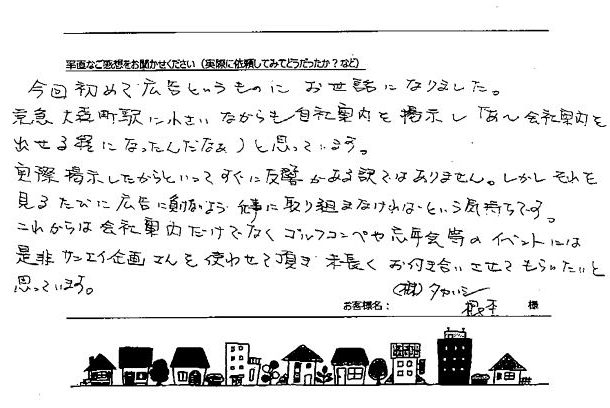 率直なご感想をお聞かせください（実際に依頼してみてどうだったか？など）
今回初めて広告というものに お世話になりました。
京急 大森町駅に小さいながらも自社案内を掲示し「あ〜会社案内を
出せる程になったんだなぁ」と思っています。
実際掲示したからといってすぐに反響がある訳ではありません。しかしそれを
見るたびに広告に負けないよう 仕事に取り組まなければという気持ちです。
これからは会社案内だけでなく ゴルフコンペや忘年会等の イベントには
是非 サンエイ企画さんを使わせて頂き 末長く お付き合いさせてもらいたいと
思っています。
(株)タカハシ
お客様名： 様